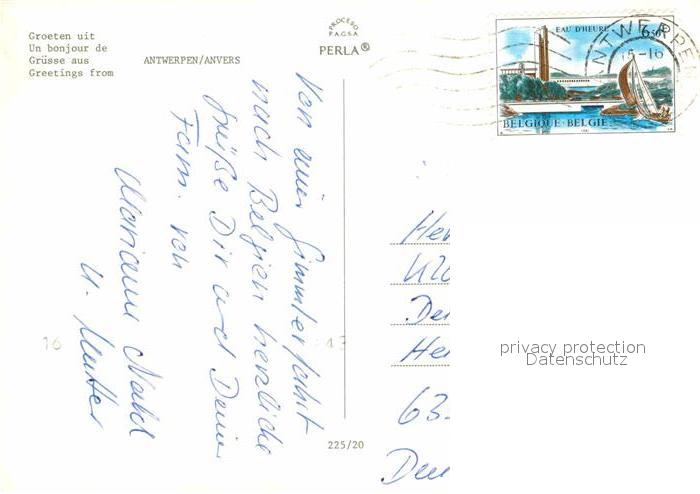 Groeten uit
Un bonjour de
Grüsse aus
Greetings from
ANTWERPEN/ANVERS
PROCESO
P.A.G.S.A.
PERLA®
EAU D'HEURE
650
BELGIQUE-BELGIE
ANTWERPE
15-10
Von einer
nach Belgien herzliche
Grüße Dir und Deiner
Fam. von
Mariann
u. Mutter
16
43
225/20
He
420
De
He
63
privacy protection
Datenschutz